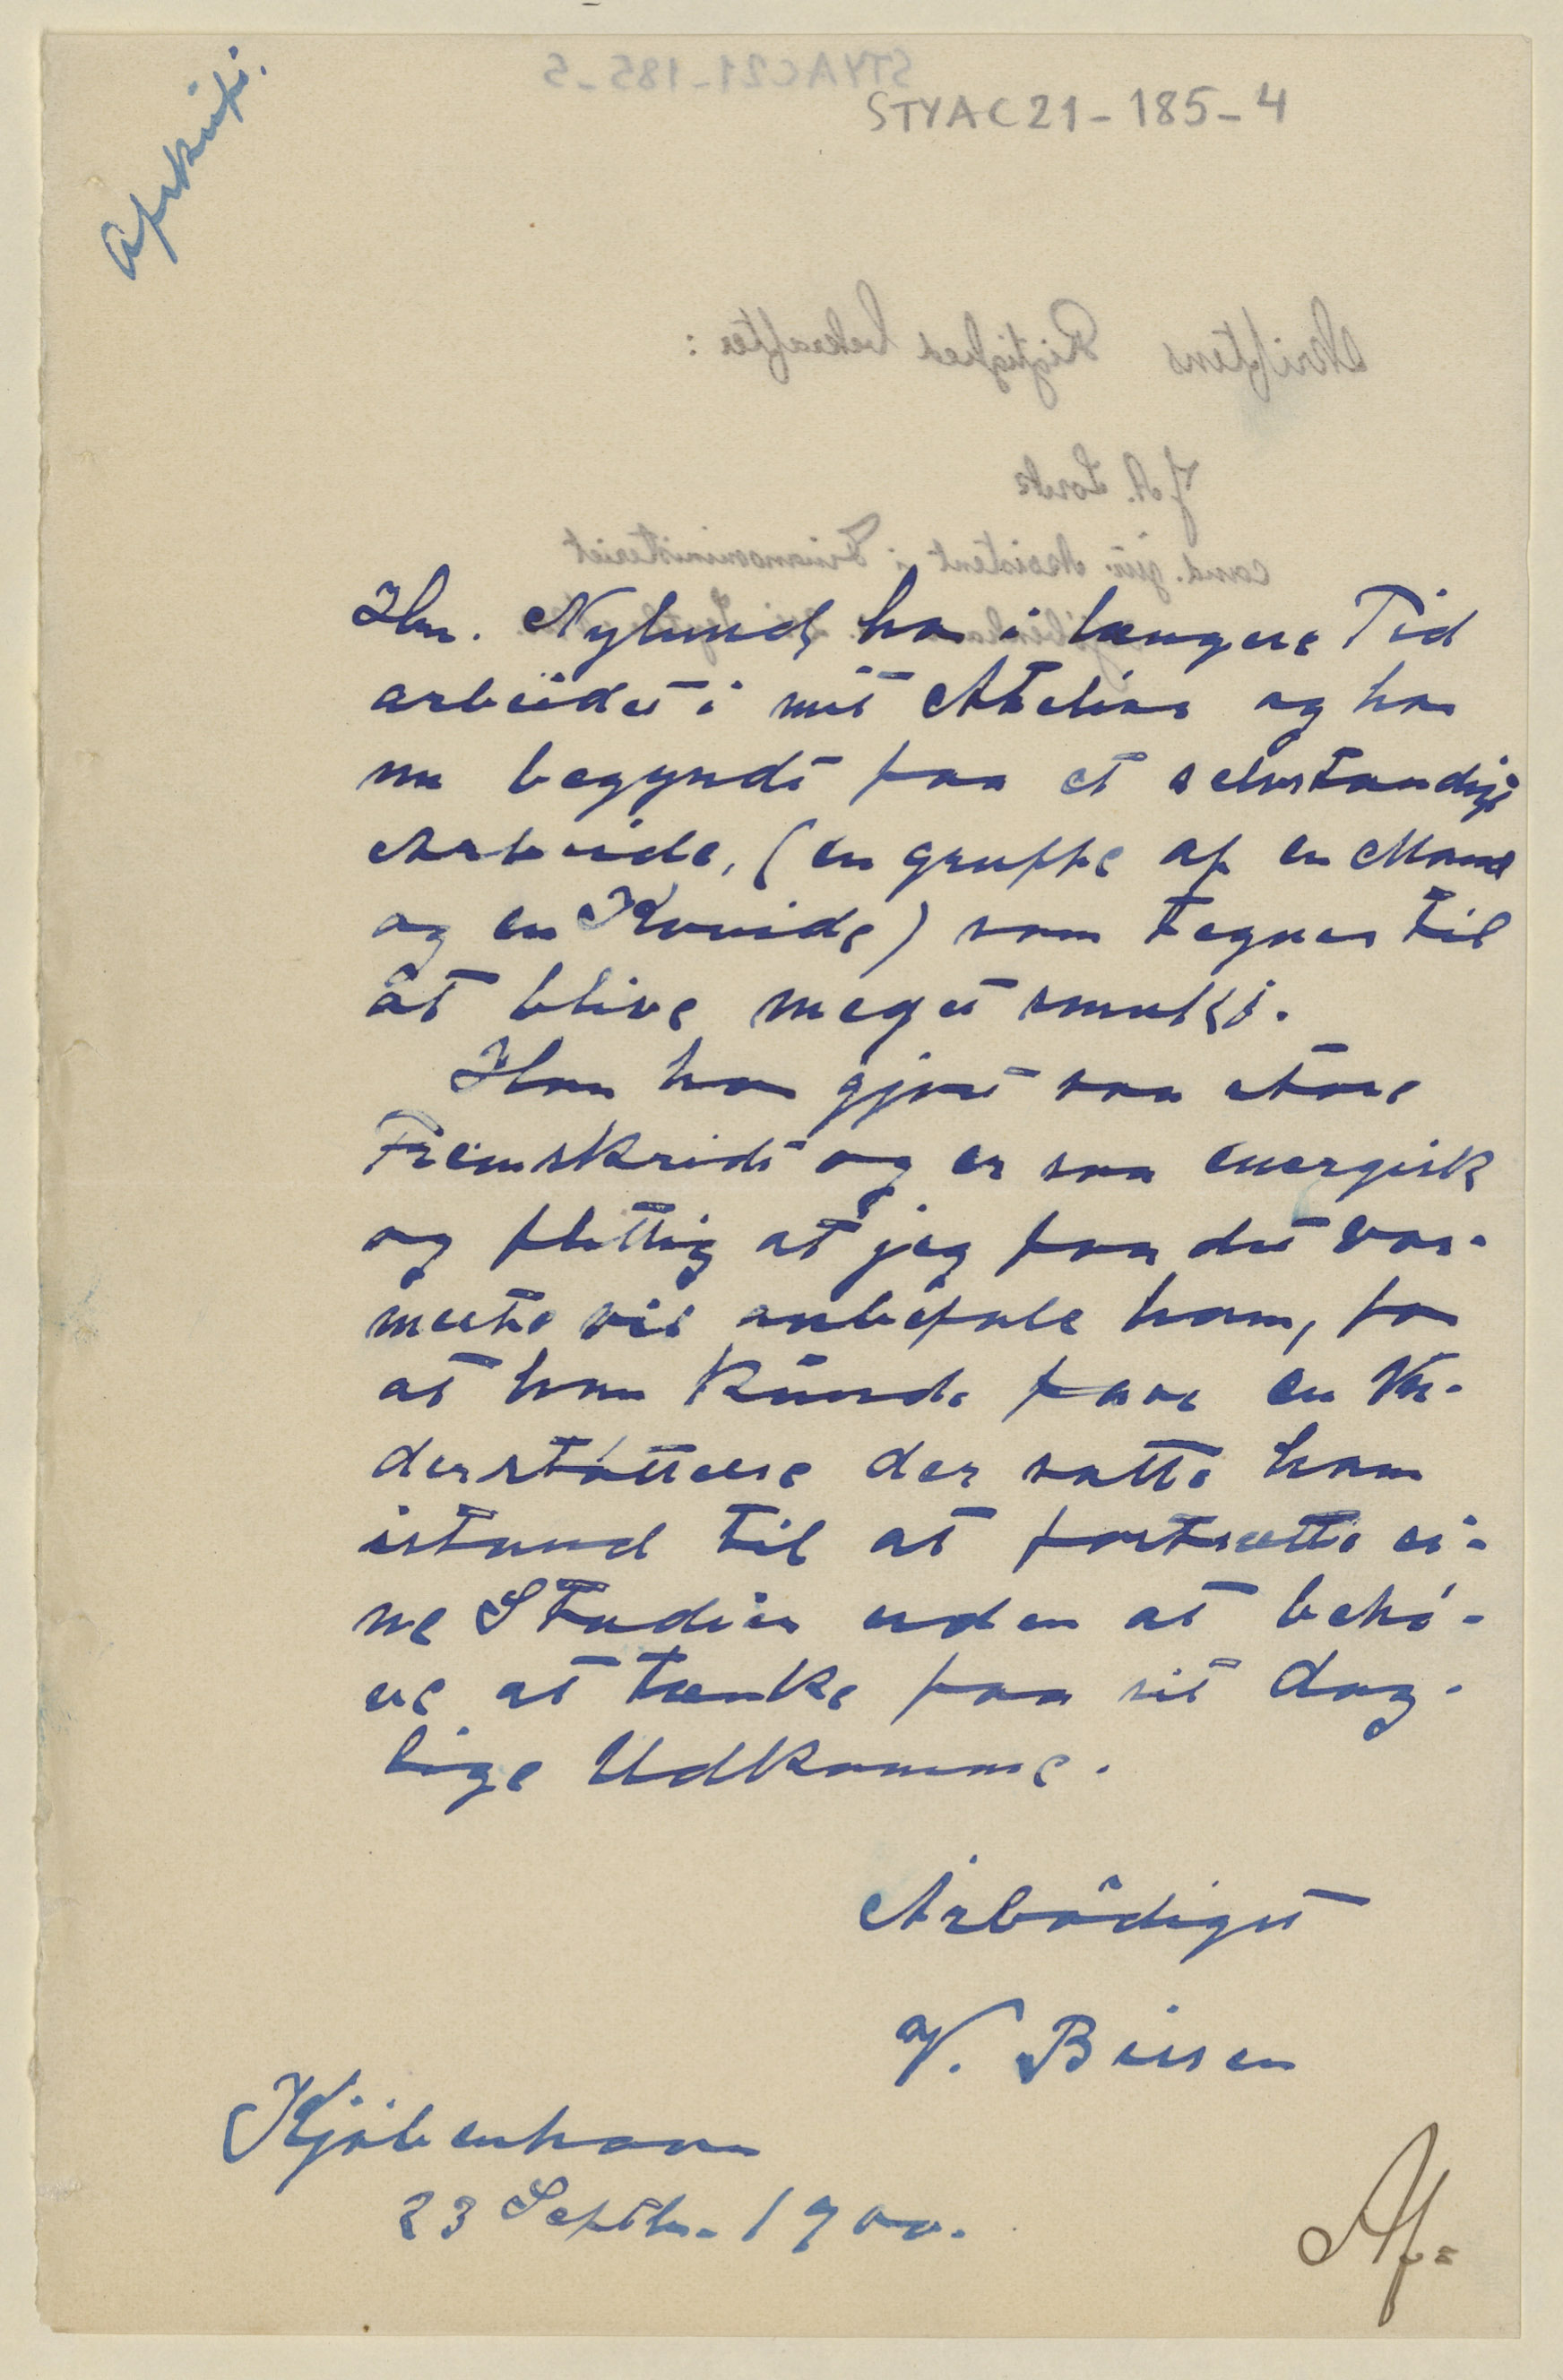 Afskrift.
STYAC21-185-4
Hr. Nylund har i længere Tid
arbeidet i mit Atelier og har
nu begyndt paa et selvstændigt
Arbeide, (en gruppe af en Mand
og en Kvinde) som tegner til
at blive meget smukt.
Han har gjort saa store
Fremskridt og er saa energisk
og flittig at jeg paa det var-
meste vil anbefale ham, for
at han kunde faae en Un-
derstøttelse der satte ham
istand til at fortsætte si-
ne Studier uden at behø-
ve at tænke paa sit dag-
lige Udkomme.
Ærbødigst
V. Bissen
Kjøbenhavn
23 Septbr. 1900.
Af=